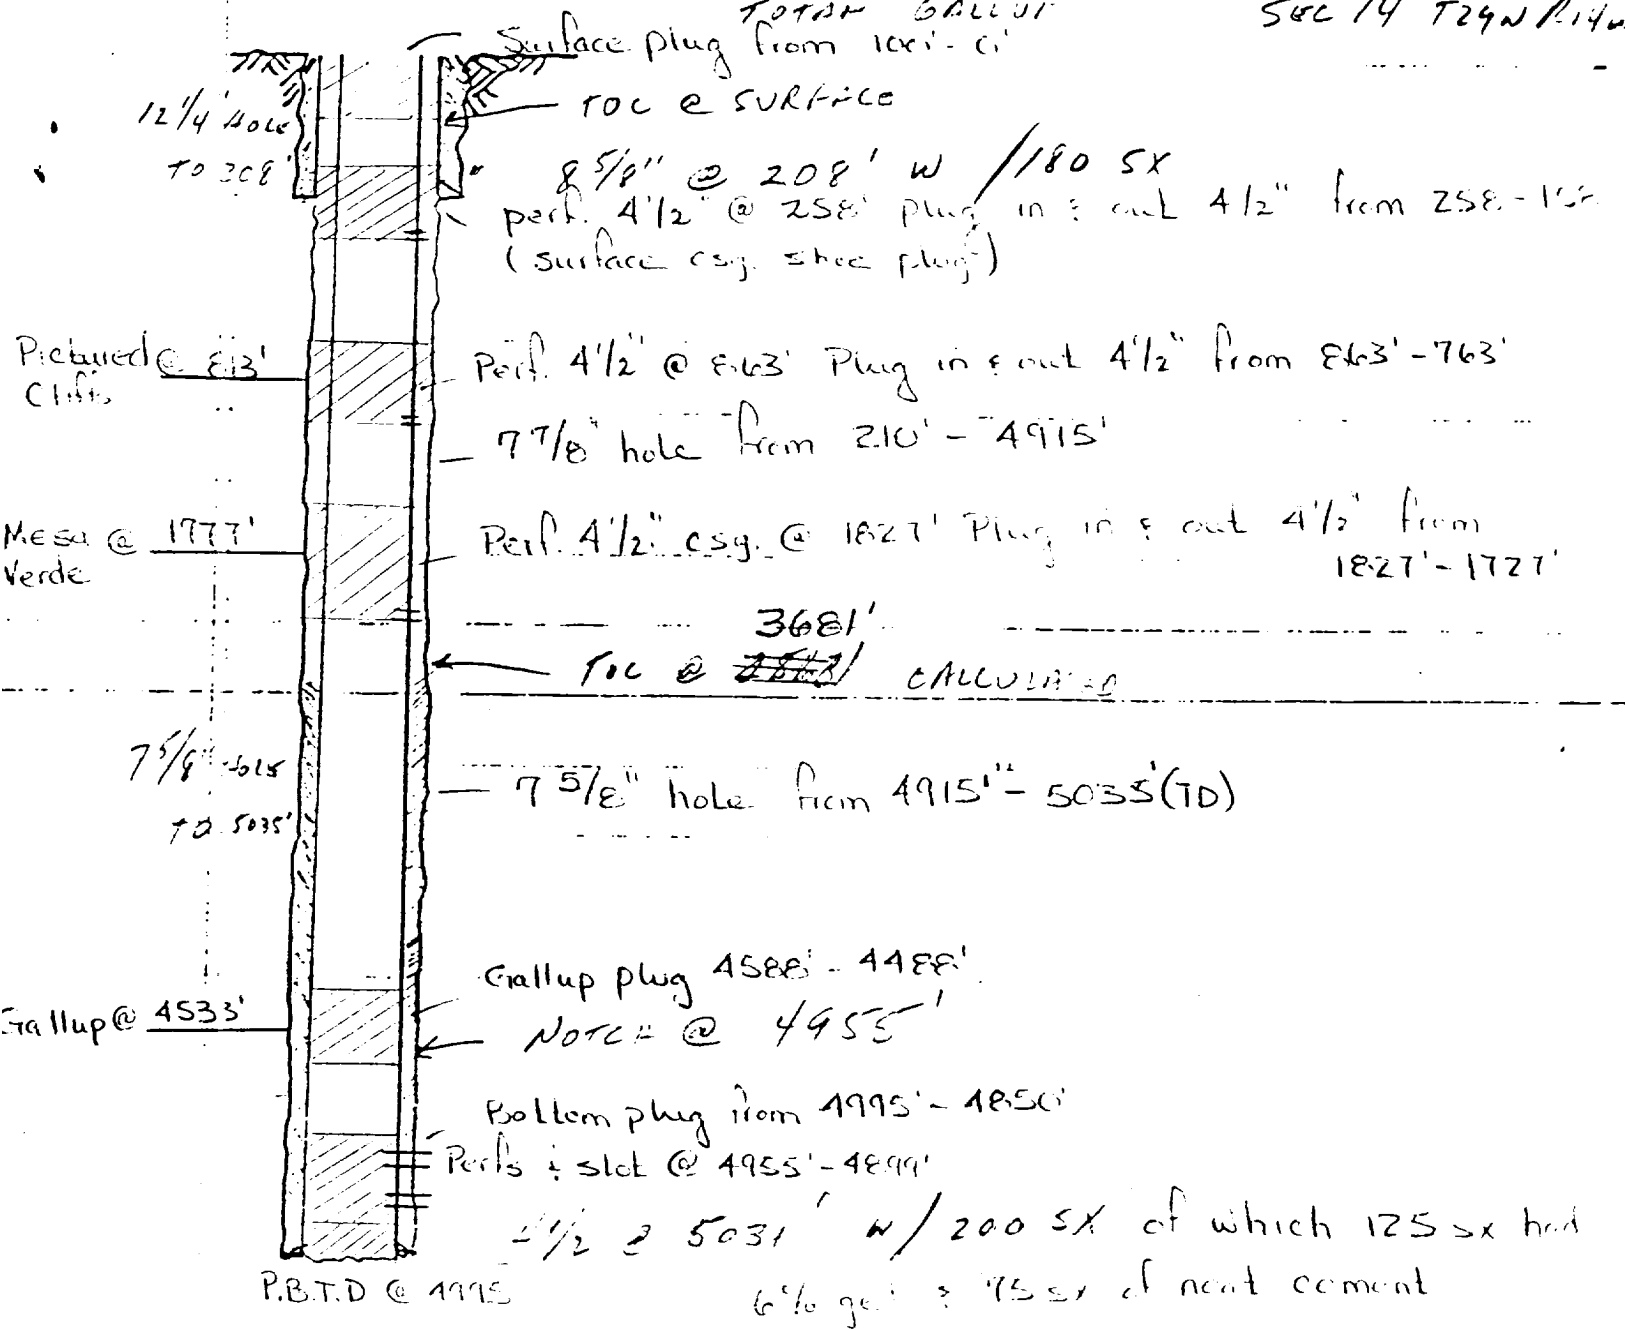 TOTAH GALLUP
SEC 14 T24N R14W
Surface plug from 100' - 0'
12 1/4 HOLE
TO 208'
TOC @ SURFACE
8 5/8" @ 208' W/180 SX
perf. 4 1/2" @ 258' plug in & out 4 1/2" from 258 -
(surface csg. shoe plug)
Pictured @ 813'
Cliffs
Perf. 4 1/2" @ 863' Plug in & out 4 1/2" from 863' - 763'
7 7/8" hole from 210' - 4915'
Mesa @ 1777'
Verde
Perf. 4 1/2" csg. @ 1827' Plug in & out 4 1/2" from
1827' - 1727'
3681'
TOC @ CALCULATED
7 5/8" HOLE
TO 5035'
7 5/8" hole from 4915' - 5035' (TD)
Gallup plug 4588' - 4488'
Gallup @ 4533'
NOTCH @ 4955'
Bottom plug from 4995' - 4850'
Perfs & slot @ 4955' - 4899'
4 1/2 @ 5031' W/200 SX of which 125 sx had
6% gel & 75 sx of neat cement
P.B.T.D @ 4995